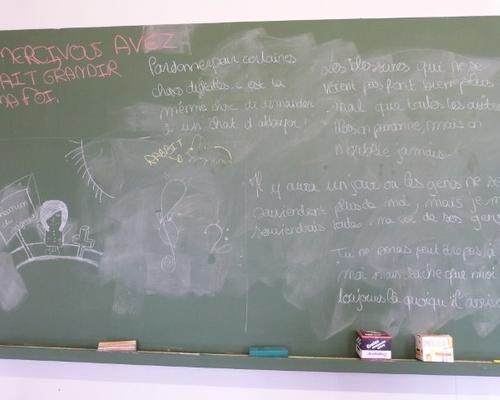 MERCI, VOUS AVEZ
FAIT GRANDIR
MA FOI.
Pardonner pour certaines
choses
c'est la
même chose de demander
à un chat d'aboyer
RABBIT
Les blessures qui ne se
voient pas font bien plus
mal que toutes les autres
mais on
n'oublie jamais
Il y aura un jour où les gens ne se
souviendront plus de moi, mais je me
souviendrai toute ma vie de ses gens
Tu ne penses peut être pas à
moi mais sache que moi
toujours là quoiqu'il arrive